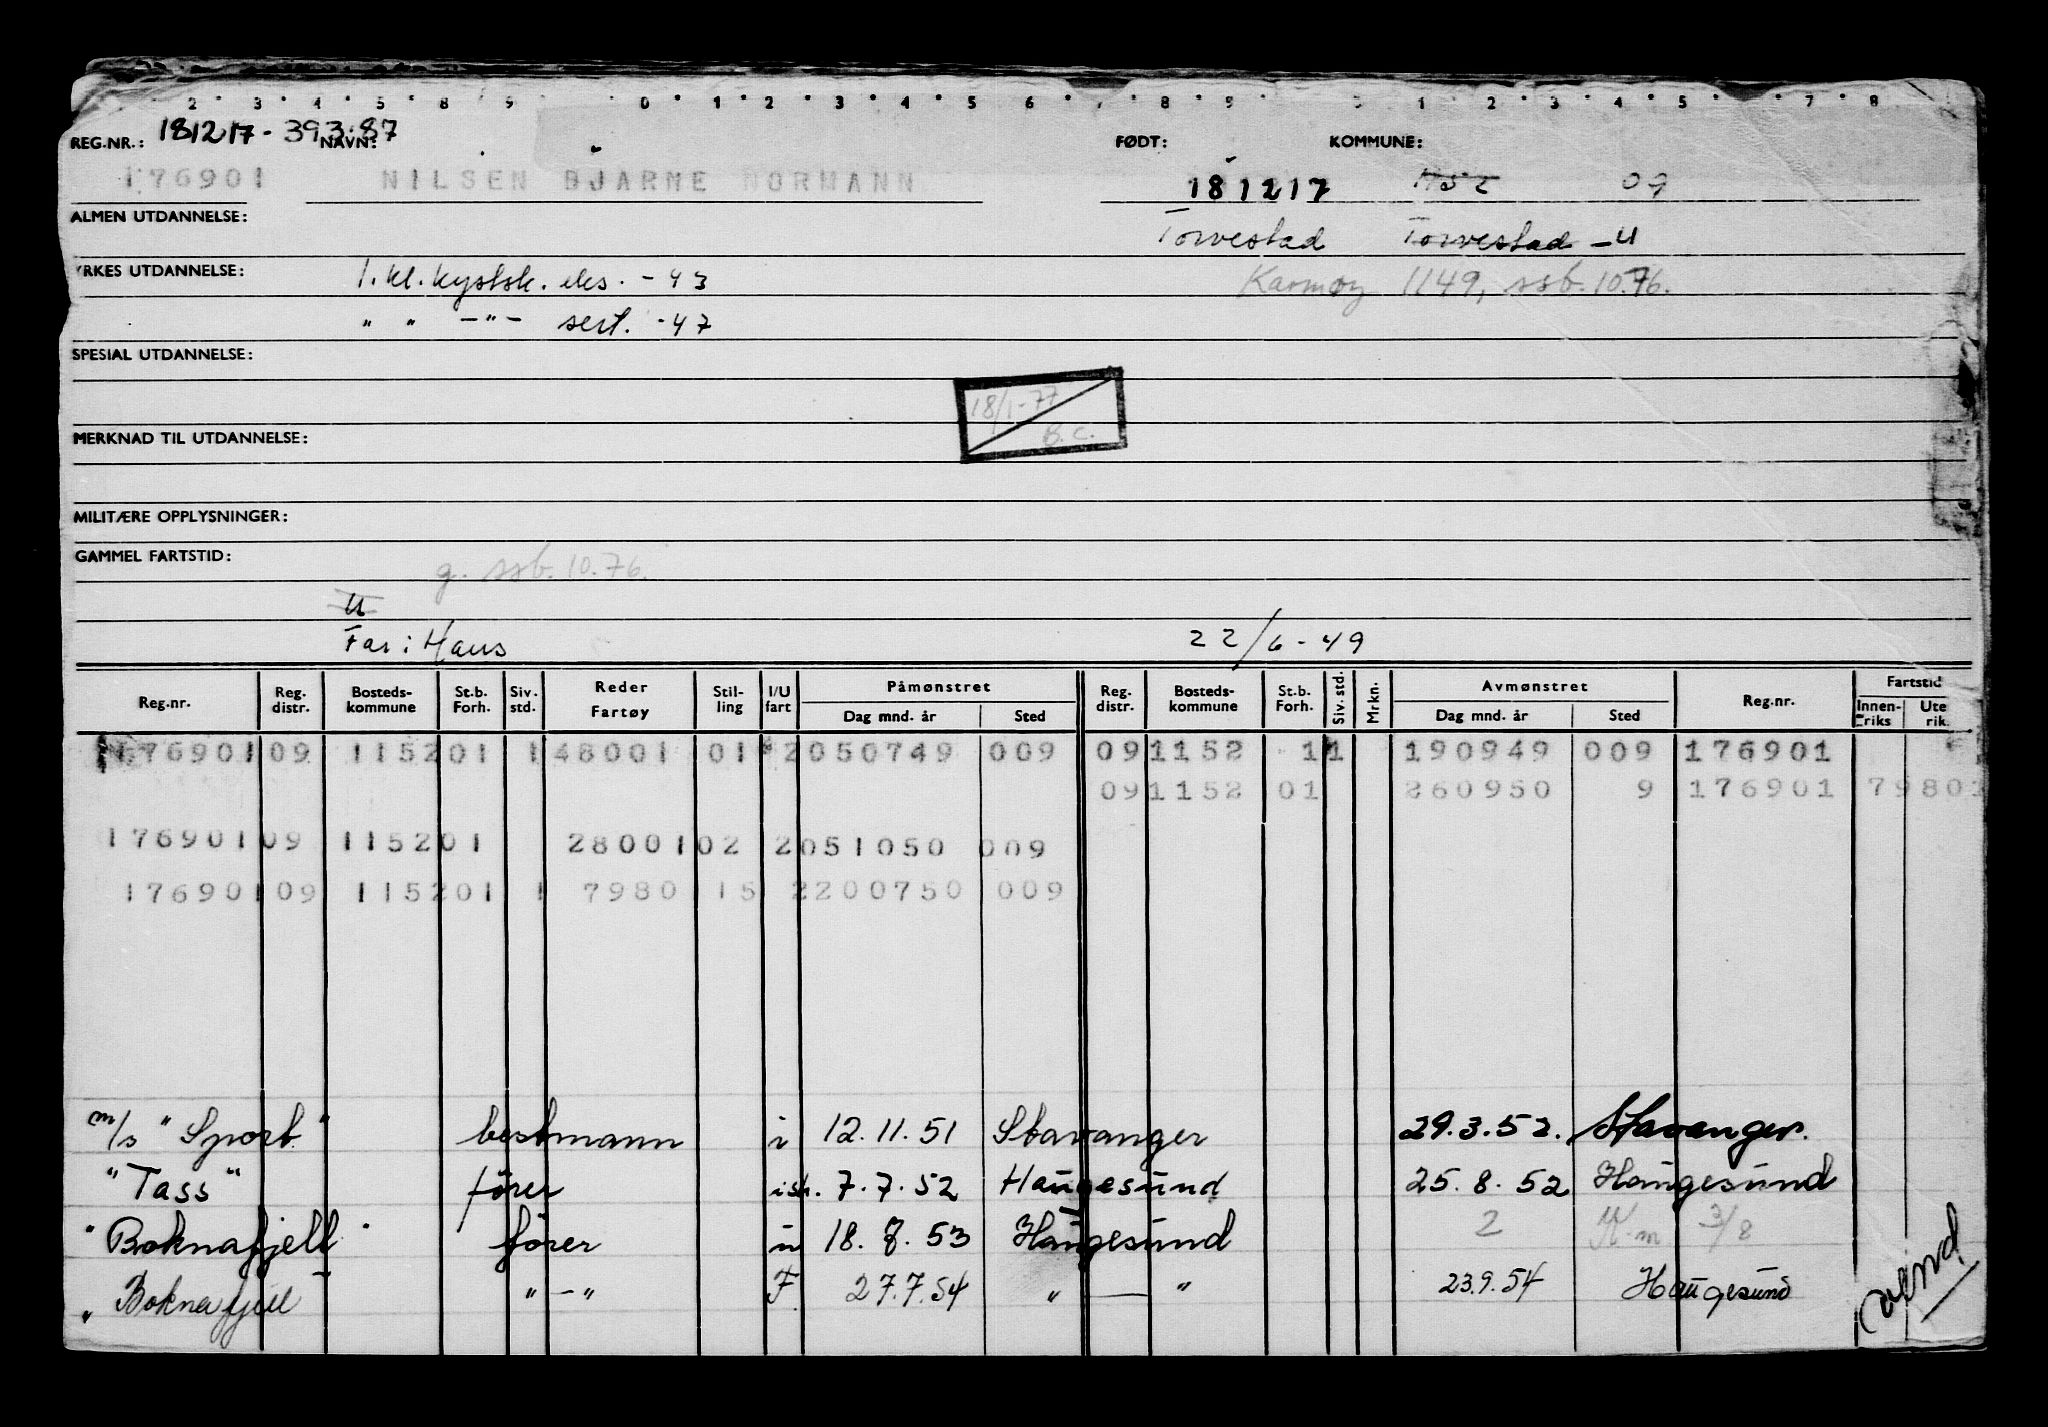 2 3 4 5 8 9 0 1 2 3 4 5 6 7 8 9 0 1 2 3 4 5 7 8
REG.NR.: 181217-393.87 NAVN: FØDT: KOMMUNE:
176901 NILSEN BJARNE NORMANN 181217 1152 09
ALMEN UTDANNELSE: Torvestad Torvestad -U
YRKES UTDANNELSE: 1. kl. kystsk. eks. - 43 Karmøy 1149, ssb. 10.76.
" " -"- sert. -47
SPESIAL UTDANNELSE:
18/1-77
B.C.
MERKNAD TIL UTDANNELSE:
MILITÆRE OPPLYSNINGER:
GAMMEL FARTSTID: g. ssb. 10.76.
U
Far: Hans 22/6-49
Reg.nr. Reg. distr. Bosteds-kommune St.b. Forh. Siv. std. Reder Fartøy Stil-ling I/U fart Påmønstret Dag mnd. år Sted Reg. distr. Bosteds-kommune St.b. Forh. Siv. std. Mrkn. Avmønstret Dag mnd. år Sted Reg.nr. Fartstid Innen-riks Ute rik
176901 09 1152 01 1 48001 01 2 050749 009 09 1152 1 1 190949 009 176901
09 1152 01 260950 9 176901 79801
176901 09 1152 01 28001 02 2 051050 009
176901 09 1152 01 1 7980 15 2 200750 009
m/s "Sport" bestmann i 12.11.51 Stavanger 29.3.52. Stavanger.
"Tass" fører 7.7.52 Haugesund 25.8.52 Haugesund
"Boknafjell" fører u 18.8.53 Haugesund 2 3/8
"Boknafjell "-" F 27.7.54 " — " 23.9.54 Haugesund